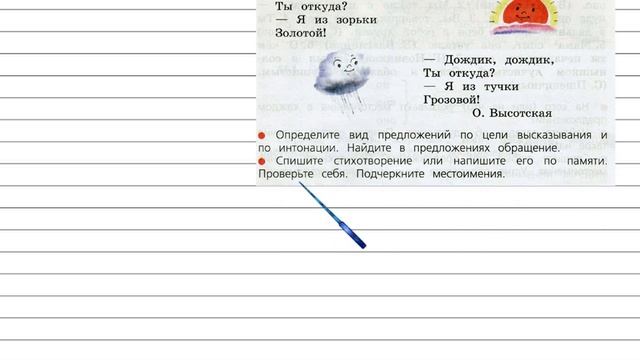 Ты откуда?
— Я из зорьки
Золотой!
— Дождик, дождик,
Ты откуда?
— Я из тучки
Грозовой!
О. Высотская
● Определите вид предложений по цели высказывания и
по интонации. Найдите в предложениях обращение.
● Спишите стихотворение или напишите его по памяти.
Проверьте себя. Подчеркните местоимения.